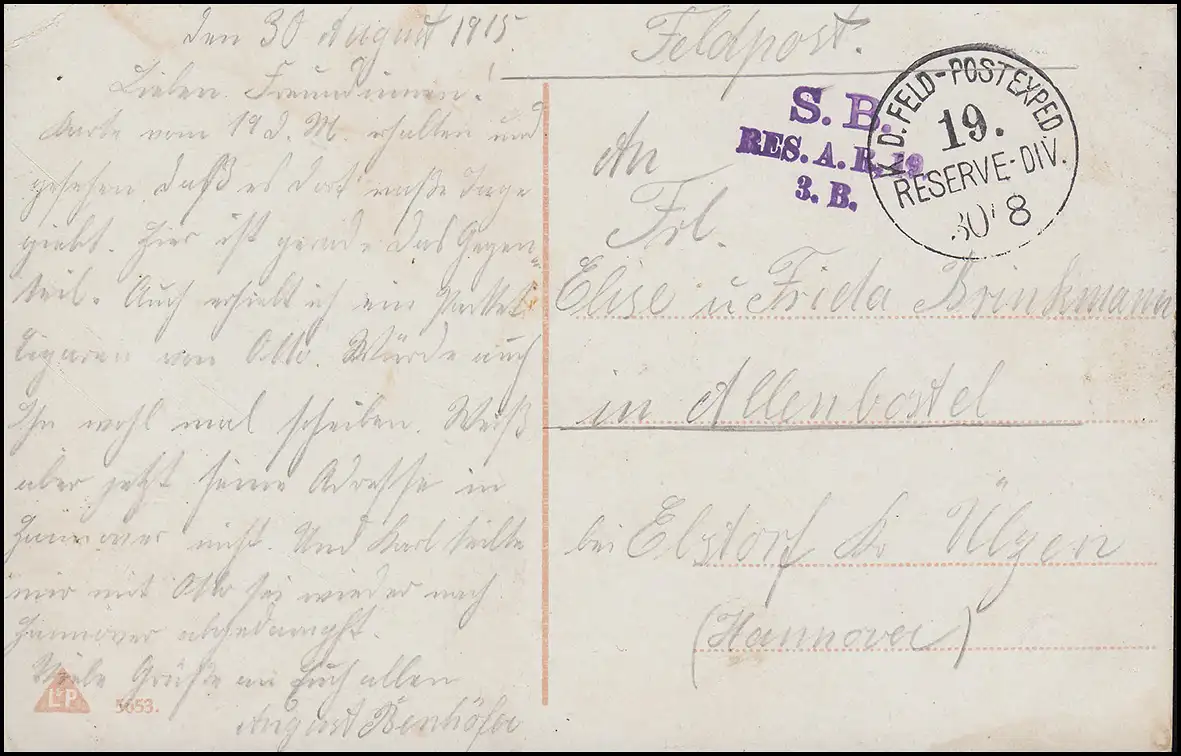 den 30 August 1915.
Lieben Freundinnen!
Karte vom 19 d. M. erhalten und
gesehen daß es dort nasse Tage
giebt. Hier ist gerade das Gegen-
teil. Auch erhielt ich ein Packet
Cigaren von Otto. Würde auch
Ihn wohl mal schreiben. Weiß
aber jetzt seine Adresse in
Hannover nicht. Und Karl teilte
mir mit Otto sei wieder nach
Hannover abgedampft.
Viele Grüße an Euch allen
August
L&P
5653.
Feldpost.
S. B.
RES. A. R. 19
3. B.
K. D. FELD-POSTEXPED.
19.
RESERVE-DIV.
30 8
An
Frl.
Elise u Frida Brinkmann
in Allenbostel
bei Ebstorf Kr Ülzen
(Hannover)